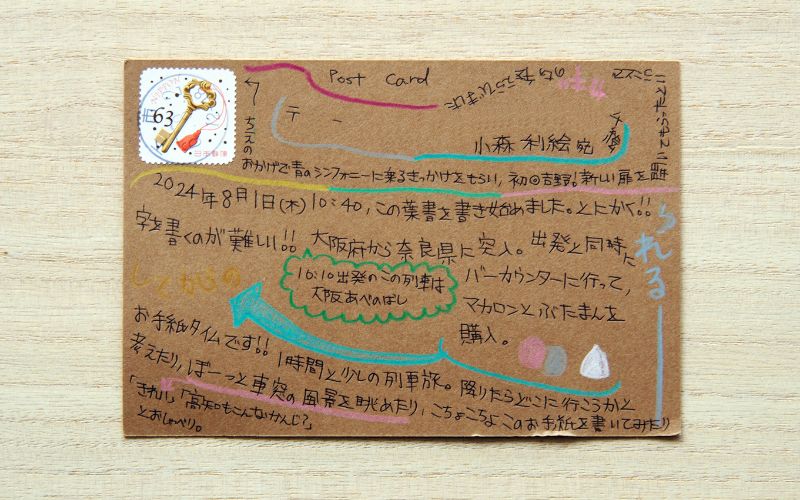 Post Card
63
日本郵便
〒 ー
小森 利絵 宛
← ちえの
おかげで青のシンフォニーに乗るきっかけをもらい、初◎吉野！新しい扉を開
られる
2024年8月1日(木)10:40、この葉書を書き始めました。とにかく!!
字を書くのが難しい!! 大阪府から奈良県に突入。出発と同時に
バーカウンターに行って、
マカロンとぶたまんを
購入。
10:10出発のこの列車は
大阪あべのばし
お手紙タイムです!! 1時間と少しの列車旅。降りたらどこに行こうかと
考えたり、ぼーっと車窓の風景を眺めたり、こちょこちょこのお手紙を書いてみたり
「きれい」「高知もこんなかんじ?」
とおしゃべり。